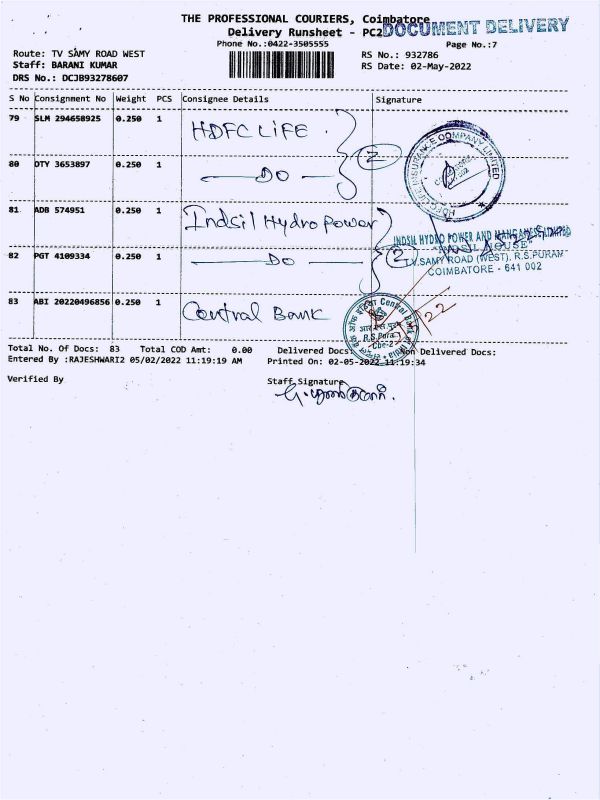 THE PROFESSIONAL COURIERS, Coimbatore
DOCUMENT DELIVERY
Delivery Runsheet - PC2
Phone No.:0422-3505555
Page No.:7
Route: TV SAMY ROAD WEST
RS No.: 932786
Staff: BARANI KUMAR
RS Date: 02-May-2022
DRS No.: DCJB93278607
S No Consignment No Weight PCS Consignee Details Signature
79 SLM 294658925 0.250 1 HDFC LIFE .
2
HDFC LIFE INSURANCE COMPANY LIMITED
80 DTY 3653897 0.250 1 DO
81 ADB 574951 0.250 1 Indsil Hydro Power
INDSIL HYDRO POWER AND MANGANESE LIMITED
"INDSIL HOUSE"
82 PGT 4109334 0.250 1 DO
2
T.V.SAMY ROAD (WEST), R.S.PURAM
COIMBATORE - 641 002
83 ABI 20220496856 0.250 1 Central Bank
Central Bank of India
R.S.Pura
Cbe-2
Total No. Of Docs: 83 Total COD Amt: 0.00 Delivered Docs: Non Delivered Docs:
Entered By :RAJESHWARI2 05/02/2022 11:19:19 AM Printed On: 02-05-2022 11:19:34
Verified By
Staff Signature